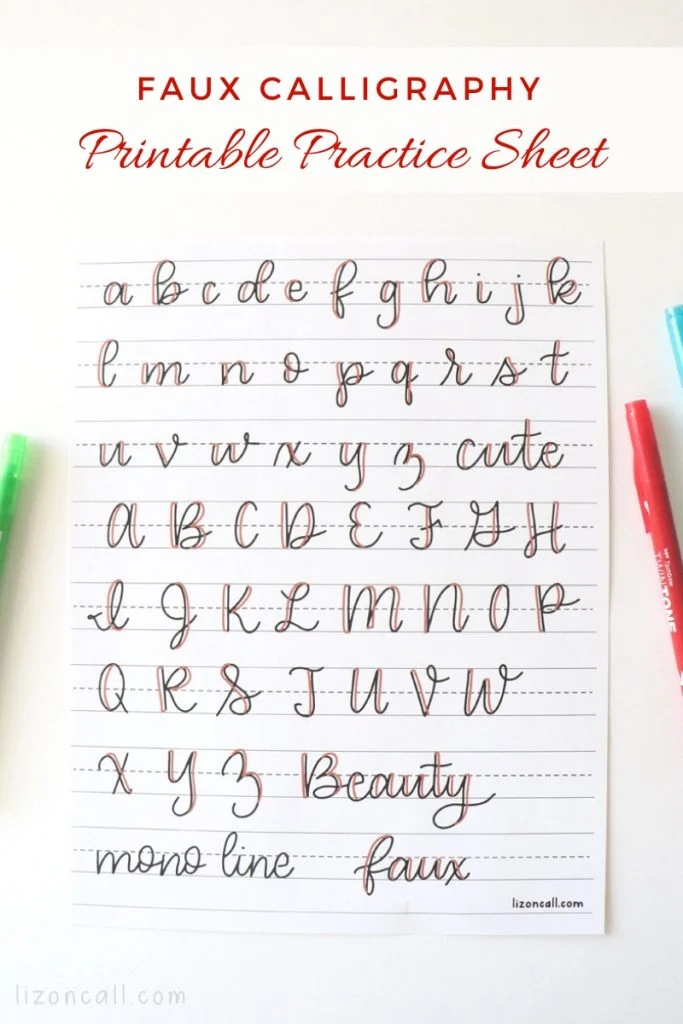 FAUX CALLIGRAPHY
Printable Practice Sheet
a b c d e f g h i j k
l m n o p q r s t
u v w x y z cute
A B C D E F G H
I J K L M N O P
Q R S T U V W
X Y Z Beauty
mono line faux
lizoncall.com
Tombow
TWINTONE
lizoncall.com